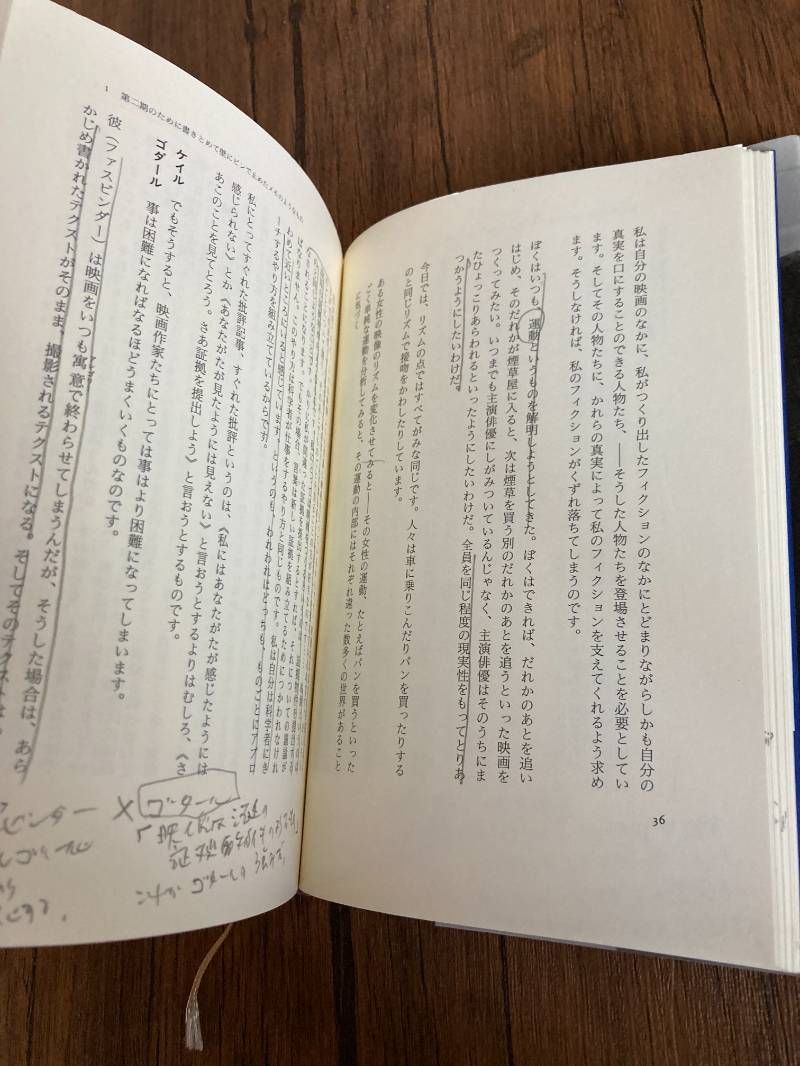 私は自分の映画のなかに、私がつくり出したフィクションのなかにとどまりながらしかも自分の
真実を口にすることのできる人物たち、――そうした人物たちを登場させることを必要としてい
ます。そしてその人物たちに、かれらの真実によって私のフィクションを支えてくれるよう求め
ます。そうしなければ、私のフィクションがくずれ落ちてしまうのです。
ぼくはいつも運動というものを解明しようとしてきた。ぼくはできれば、だれかのあとを追い
はじめ、そのだれかが煙草屋に入ると、次は煙草を買う別のだれかのあとを追うといった映画を
つくってみたい。いつまでも主演俳優にしがみついているんじゃなく、主演俳優はそのうちにま
たひょっこりあらわれるといったようにしたいわけだ。全員を同じ程度の現実性をもってとりあ
つかうようにしたいわけだ。
今日では、リズムの点ではすべてがみな同じです。人々は車に乗りこんだりパンを買ったりする
のと同じリズムで接吻をかわしたりしています。
ある女性の映像のリズムを変化させてみると――その女性の運動、たとえばパンを買うといった
ごく単純な運動を分析してみると、その運動の内部にはそれぞれ違った数多くの世界があること
に気づく
36
1 第二期のために書きとめて壁にピンで止めたメモのようなもの
ばなりません。このやり方は科学者が仕事をするやり方と同じものです。私は自分は科学者にき
わめて近いところにいると感じています。というのも、われわれはどっちも、ものごとにアプロ
ーチするやり方を組み立てているからです。
私にとってすぐれた批評記事、すぐれた批評というのは、《私にはあなたがたが感じたようには
感じられない》とか《あなたがたが見たようには見えない》と言おうとするよりはむしろ、《さ
あこのことを見てとろう。さあ証拠を提出しよう》と言おうとするものです。
ケイル でもそうすると、映画作家たちにとっては事はより困難になってしまいます。
ゴダール 事は困難になればなるほどうまくいくものなのです。
彼（ファスビンダー）は映画をいつも寓意で終わらせてしまうんだが、そうした場合は、あら
かじめ書かれたテクストがそのまま、撮影されるテクストになる。そしてそのテクストは、
ビンダー × ゴダール